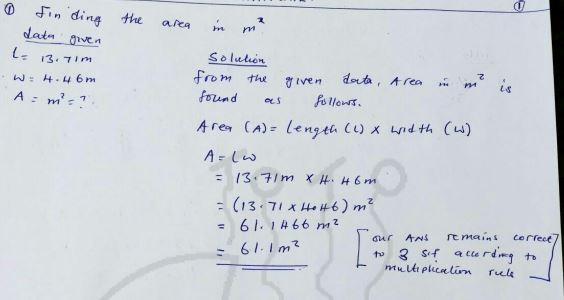 ① Finding the area in m²
①
data given
L = 13.71m
W = 4.46m
A = m² = ?
Solution
From the given data, Area in m² is
found as follows.
Area (A) = Length (L) x Width (W)
A = LW
= 13.71m x 4.46m
= (13.71 x 4.46) m²
= 61.1466 m²
= 61.1 m²
[our ANS remains correct
to 3 s.f according to
multiplication rule]